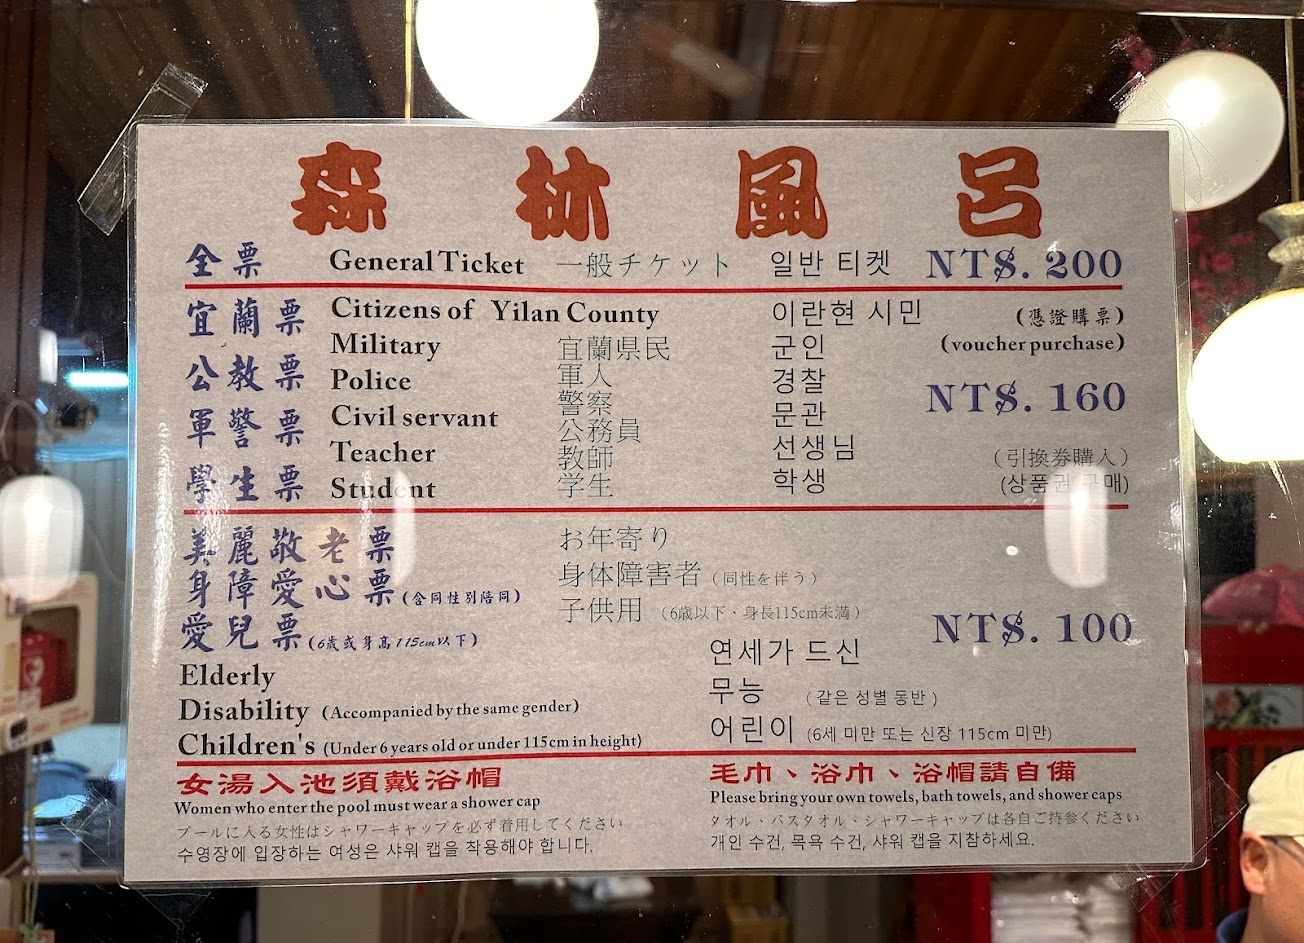 森林風呂
全票 General Ticket 一般チケット 일반 티켓 NT$. 200
宜蘭票 Citizens of Yilan County 이란현 시민 (憑證購票)
Military 宜蘭県民 군인 (voucher purchase)
公教票 Police 軍人 경찰 NT$. 160
警察
軍警票 Civil servant 公務員 문관
Teacher 教師 선생님 （引換券購入）
學生票 Student 学生 학생 (상품권 구매)
美麗敬老票 お年寄り
身障愛心票(含同性別陪同) 身体障害者（同性を伴う）
愛兒票(6歲或身高115cm以下) 子供用 （6歳以下、身長115cm未満） NT$. 100
연세가 드신
Elderly 무능 (같은 성별 동반)
Disability (Accompanied by the same gender)
Children's (Under 6 years old or under 115cm in height) 어린이 (6세 미만 또는 신장 115cm 미만)
女湯入池須戴浴帽
Women who enter the pool must wear a shower cap
プールに入る女性はシャワーキャップを必ず着用してください
수영장에 입장하는 여성은 샤워 캡을 착용해야 합니다.
毛巾、浴巾、浴帽請自備
Please bring your own towels, bath towels, and shower caps
タオル、バスタオル、シャワーキャップは各自ご持参ください
개인 수건, 목욕 수건, 샤워 캡을 지참하세요.